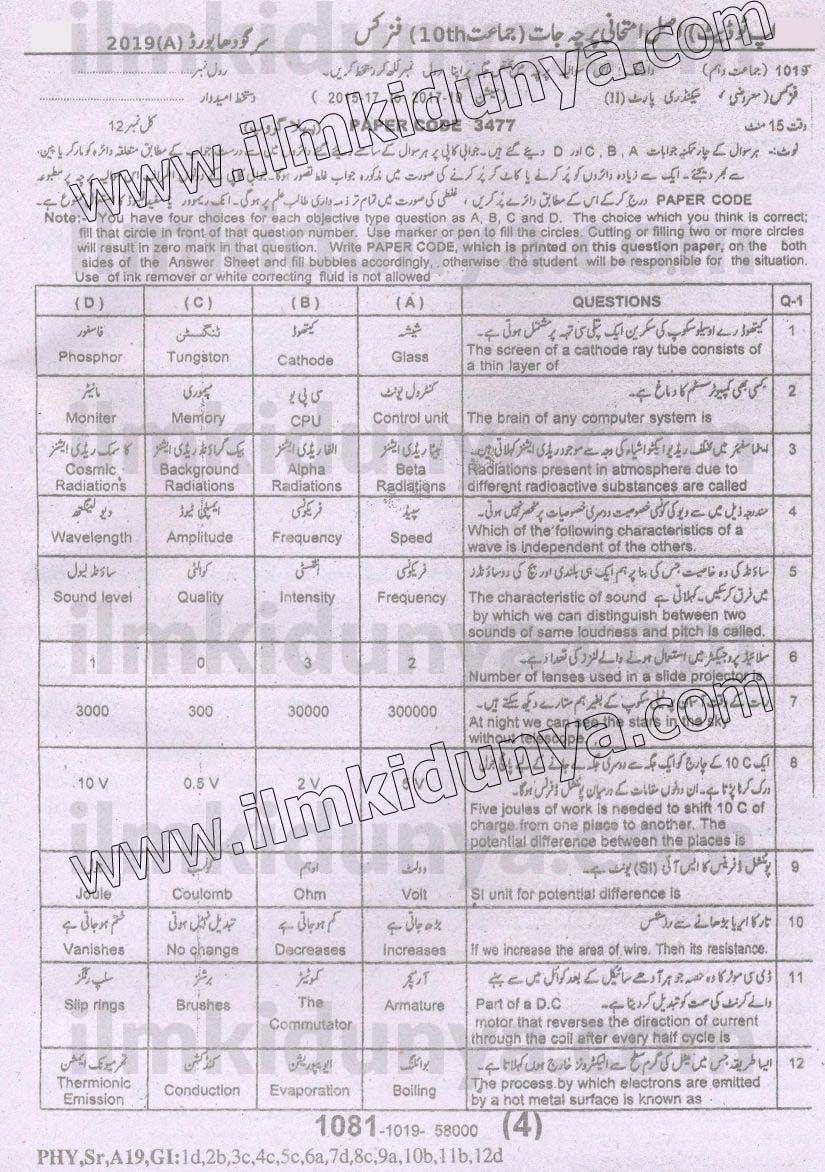 اپ ٹو ڈیٹ اصل امتحانی پرچہ جات (جماعت 10th) فزکس سرگودھا بورڈ 2019(A)
1019 (جماعت دہم) رول نمبر
فزکس (معروضی) سیکنڈری پارٹ (II) دستخط امیدوار
وقت 15 منٹ PAPER CODE 3477 کل نمبر 12
نوٹ: ہر سوال کے چار ممکنہ جوابات A ، B ، C اور D دیئے گئے ہیں۔ جوابی کاپی پر ہر سوال کے سامنے
PAPER CODE درج کر کے اس کے مطابق دائرے پُر کریں
Note:- You have four choices for each objective type question as A, B, C and D. The choice which you think is correct;
fill that circle in front of that question number. Use marker or pen to fill the circles. Cutting or filling two or more circles
will result in zero mark in that question. Write PAPER CODE, which is printed on this question paper, on the both
sides of the Answer Sheet and fill bubbles accordingly, otherwise the student will be responsible for the situation.
Use of ink remover or white correcting fluid is not allowed
(D) (C) (B) (A) QUESTIONS Q-1
فاسفور ٹنگسٹن کیتھوڈ شیشہ کیتھوڈ رے اوسیلوسکوپ کی سکرین ایک پتلی سی تہہ پر مشتمل ہوتی ہے۔ 1
Phosphor Tungston Cathode Glass The screen of a cathode ray tube consists of
a thin layer of
مانیٹر میموری سی پی یو کنٹرول یونٹ کسی بھی کمپیوٹر سسٹم کا دماغ ہے۔ 2
Moniter Memory CPU Control unit The brain of any computer system is
کاسمک ریڈی ایشنز بیک گراؤنڈ ریڈی ایشنز الفا ریڈی ایشنز بیٹا ریڈی ایشنز ایٹماسفیئر میں مختلف ریڈیو ایکٹو اشیاء کی وجہ سے موجود ریڈی ایشنز کہلاتی ہیں۔ 3
Cosmic Radiations Background Radiations Alpha Radiations Beta Radiations Radiations present in atmosphere due to
different radioactive substances are called
ویو لینگتھ ایمپلی ٹیوڈ فریکوئنسی سپیڈ مندرجہ ذیل میں سے ویو کی کونسی خصوصیت دوسری خصوصیات پر منحصر نہیں ہوتی۔ 4
Wavelength Amplitude Frequency Speed Which of the following characteristics of a
wave is independent of the others.
ساؤنڈ لیول کوالٹی انٹنسٹی فریکوئنسی ساؤنڈ کی وہ خاصیت جس کی بنا پر ہم ایک ہی بلندی اور پچ کی دو ساؤنڈز 5
Sound level Quality Intensity Frequency میں فرق کر سکیں۔ کہلاتی ہے The characteristic of sound
by which we can distinguish between two
sounds of same loudness and pitch is called.
1 0 3 2 سلائیڈ پروجیکٹر میں استعمال ہونے والے لنزز کی تعداد ہے۔ 6
Number of lenses used in a slide projector is
3000 300 30000 300000 سکوپ کے بغیر ہم ستارے دیکھ سکتے ہیں۔ 7
At night we can see the stars in the sky
without telescope
10 V 0.5 V 2 V 5 V ایک 10 C کے چارج کو ایک جگہ سے دوسری جگہ لے جانے کے لیے پانچ جول 8
ورک کرنا پڑتا ہے۔ ان دونوں مقامات کے درمیان پوٹینشل ڈفرنس ہوگا۔
Five joules of work is needed to shift 10 C of
charge from one place to another. The
potential difference between the places is
اوہم وولٹ پوٹینشل ڈفرنس کا ایس آئی (SI) یونٹ ہے۔ 9
Joule Coulomb Ohm Volt SI unit for potential difference is
ختم ہو جاتی ہے تبدیل نہیں ہوتی کم ہو جاتی ہے بڑھ جاتی ہے تار کا ایریا بڑھانے سے رزسٹنس 10
Vanishes No change Decreases Increases If we increase the area of wire. Then its resistance.
سلپ رنگز برشز کموٹیٹر آرمیچر ڈی سی موٹر کا وہ حصہ جو ہر آدھے سائیکل کے بعد کوائل میں سے بہنے 11
Slip rings Brushes The Commutator Armature والے کرنٹ کی سمت کو تبدیل کر دیتا ہے۔ Part of a D.C
motor that reverses the direction of current
through the coil after every half cycle is
تھرمیونک ایمشن کنڈکشن ایوپیوریشن بوائلنگ ایسا طریقہ جس میں میٹل کی گرم سطح سے الیکٹرونز خارج ہوں کہلاتا ہے۔ 12
Thermionic Emission Conduction Evaporation Boiling The process by which electrons are emitted
by a hot metal surface is known as
1081-1019- 58000 (4)
PHY,Sr,A19,GI:1d,2b,3c,4c,5c,6a,7d,8c,9a,10b,11b,12d
www.ilmkidunya.com
www.ilmkidunya.com
ilmkidunya.com
ilmkidunya.com
ilmkidunya.com
ilmkidunya.com